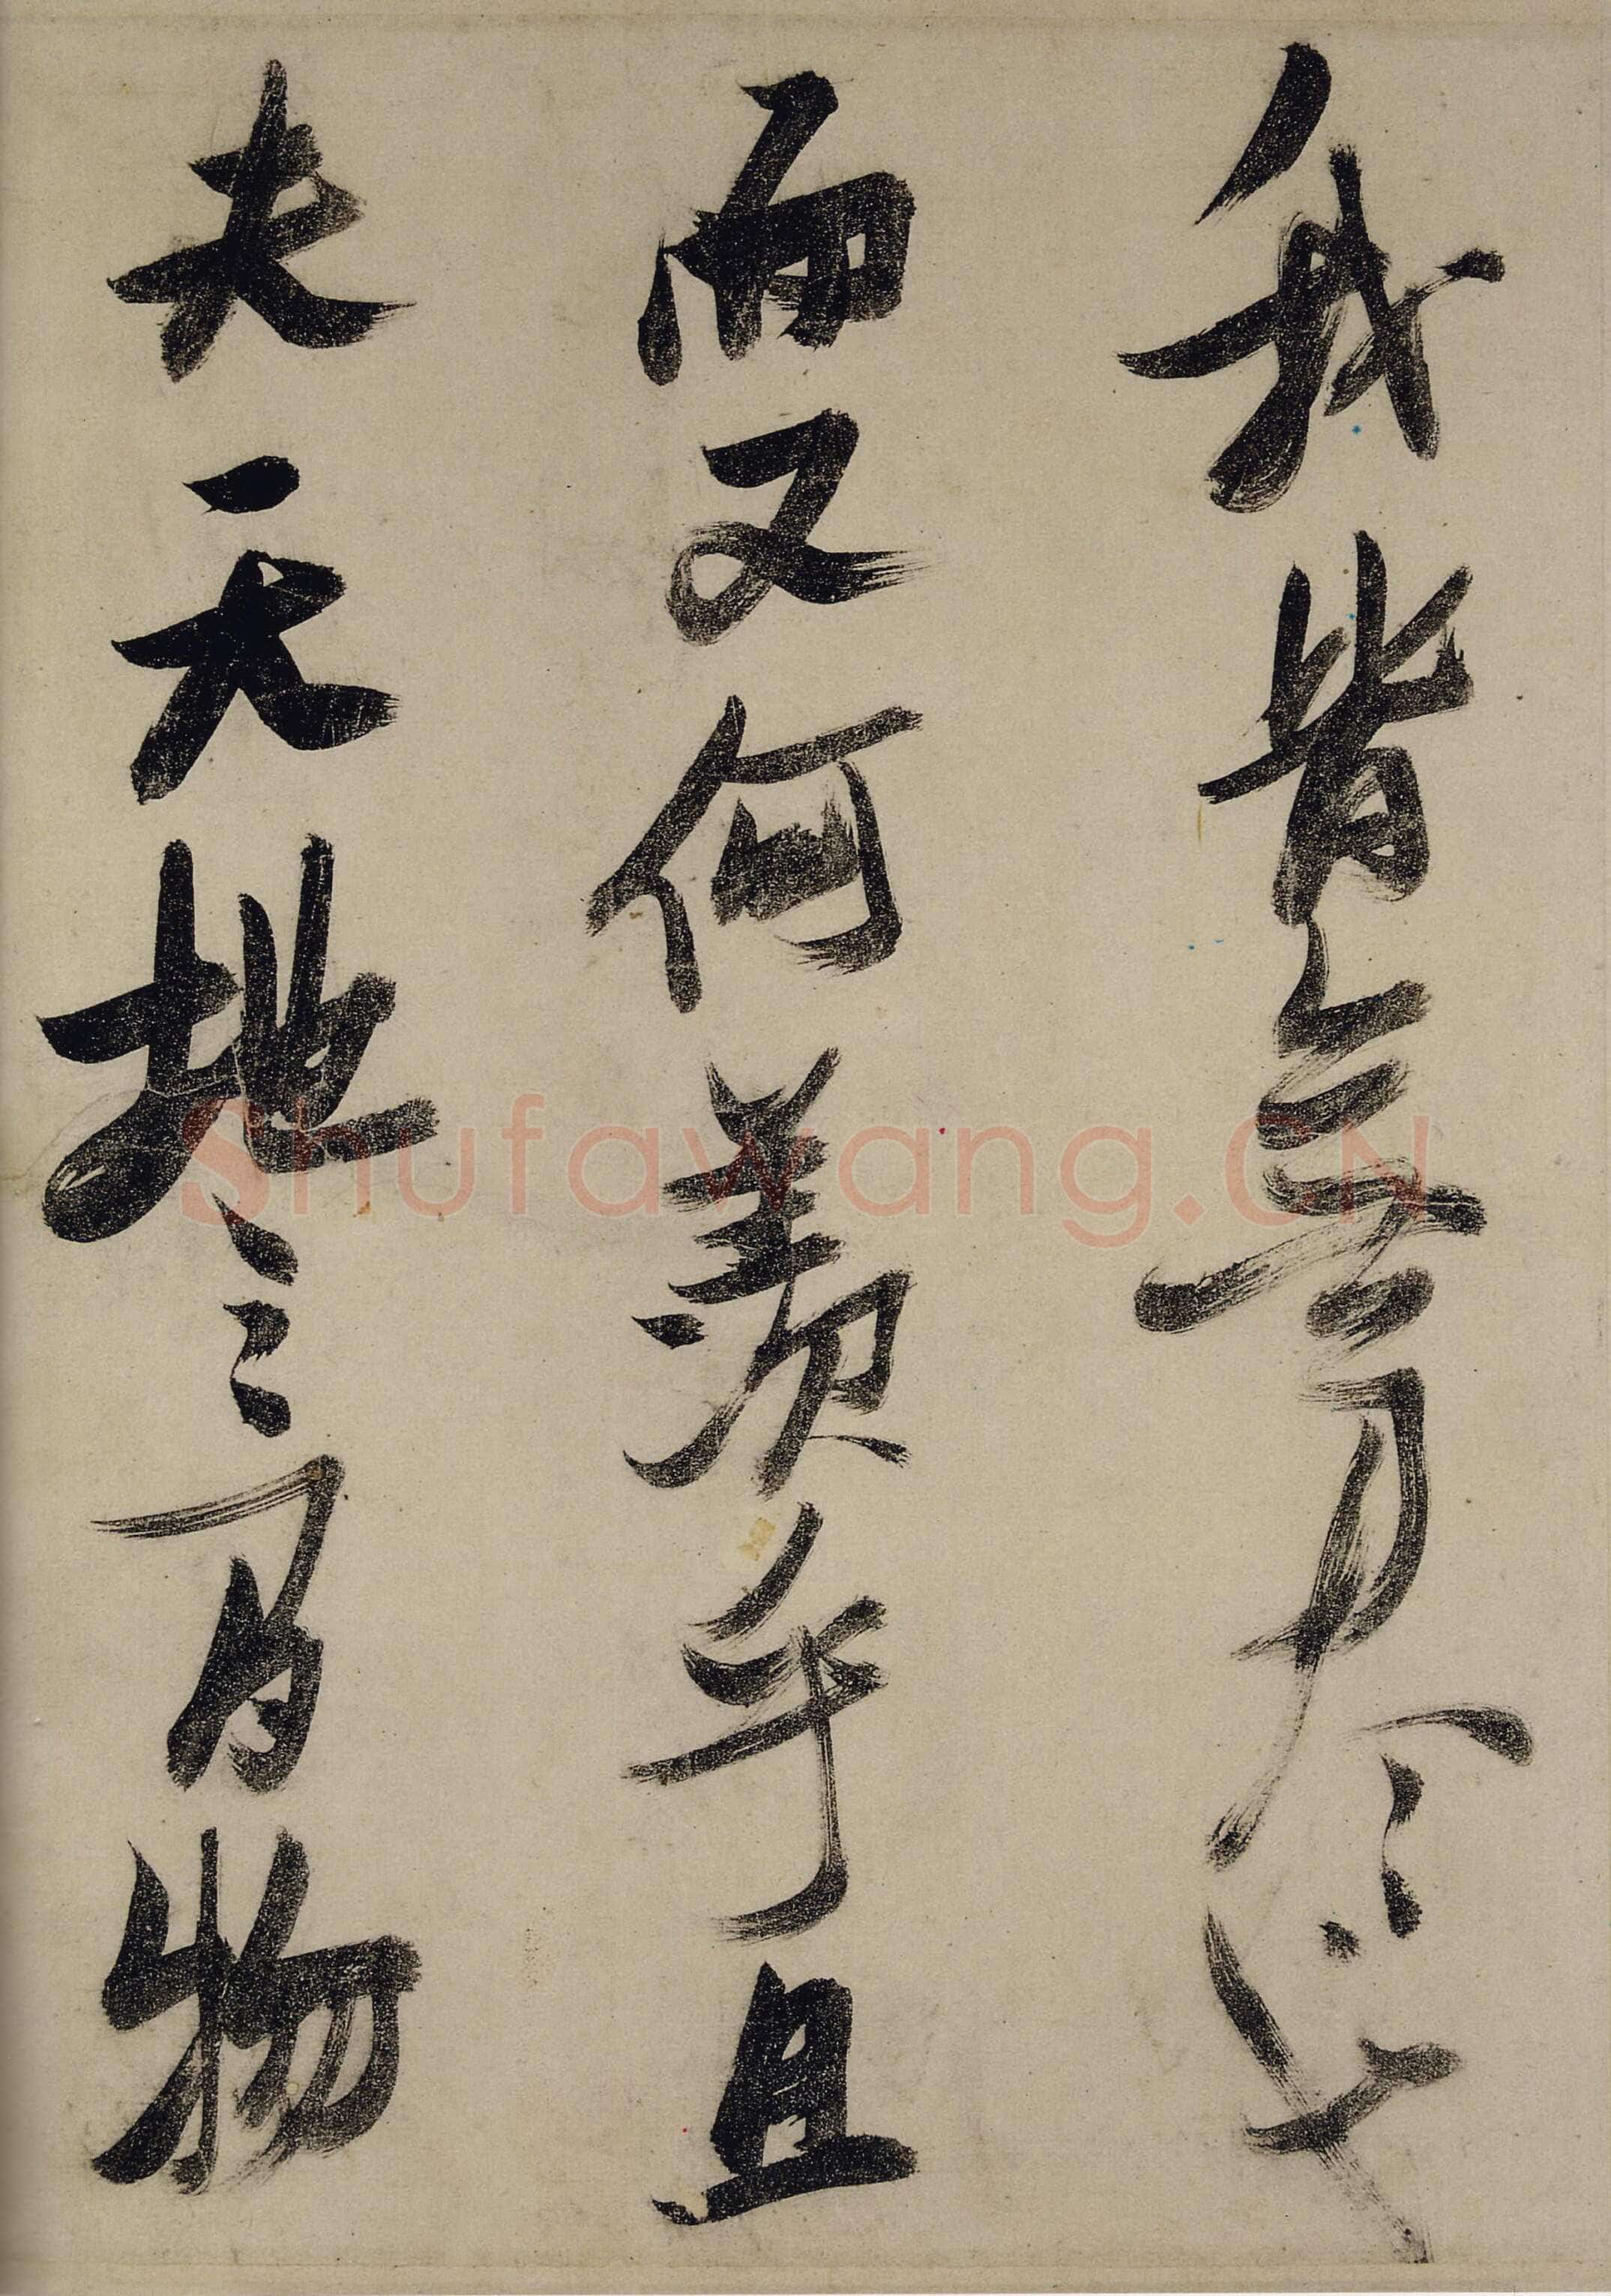 我皆無尽也
而又何羨乎且
夫天地之間万物
Shufawang.CN